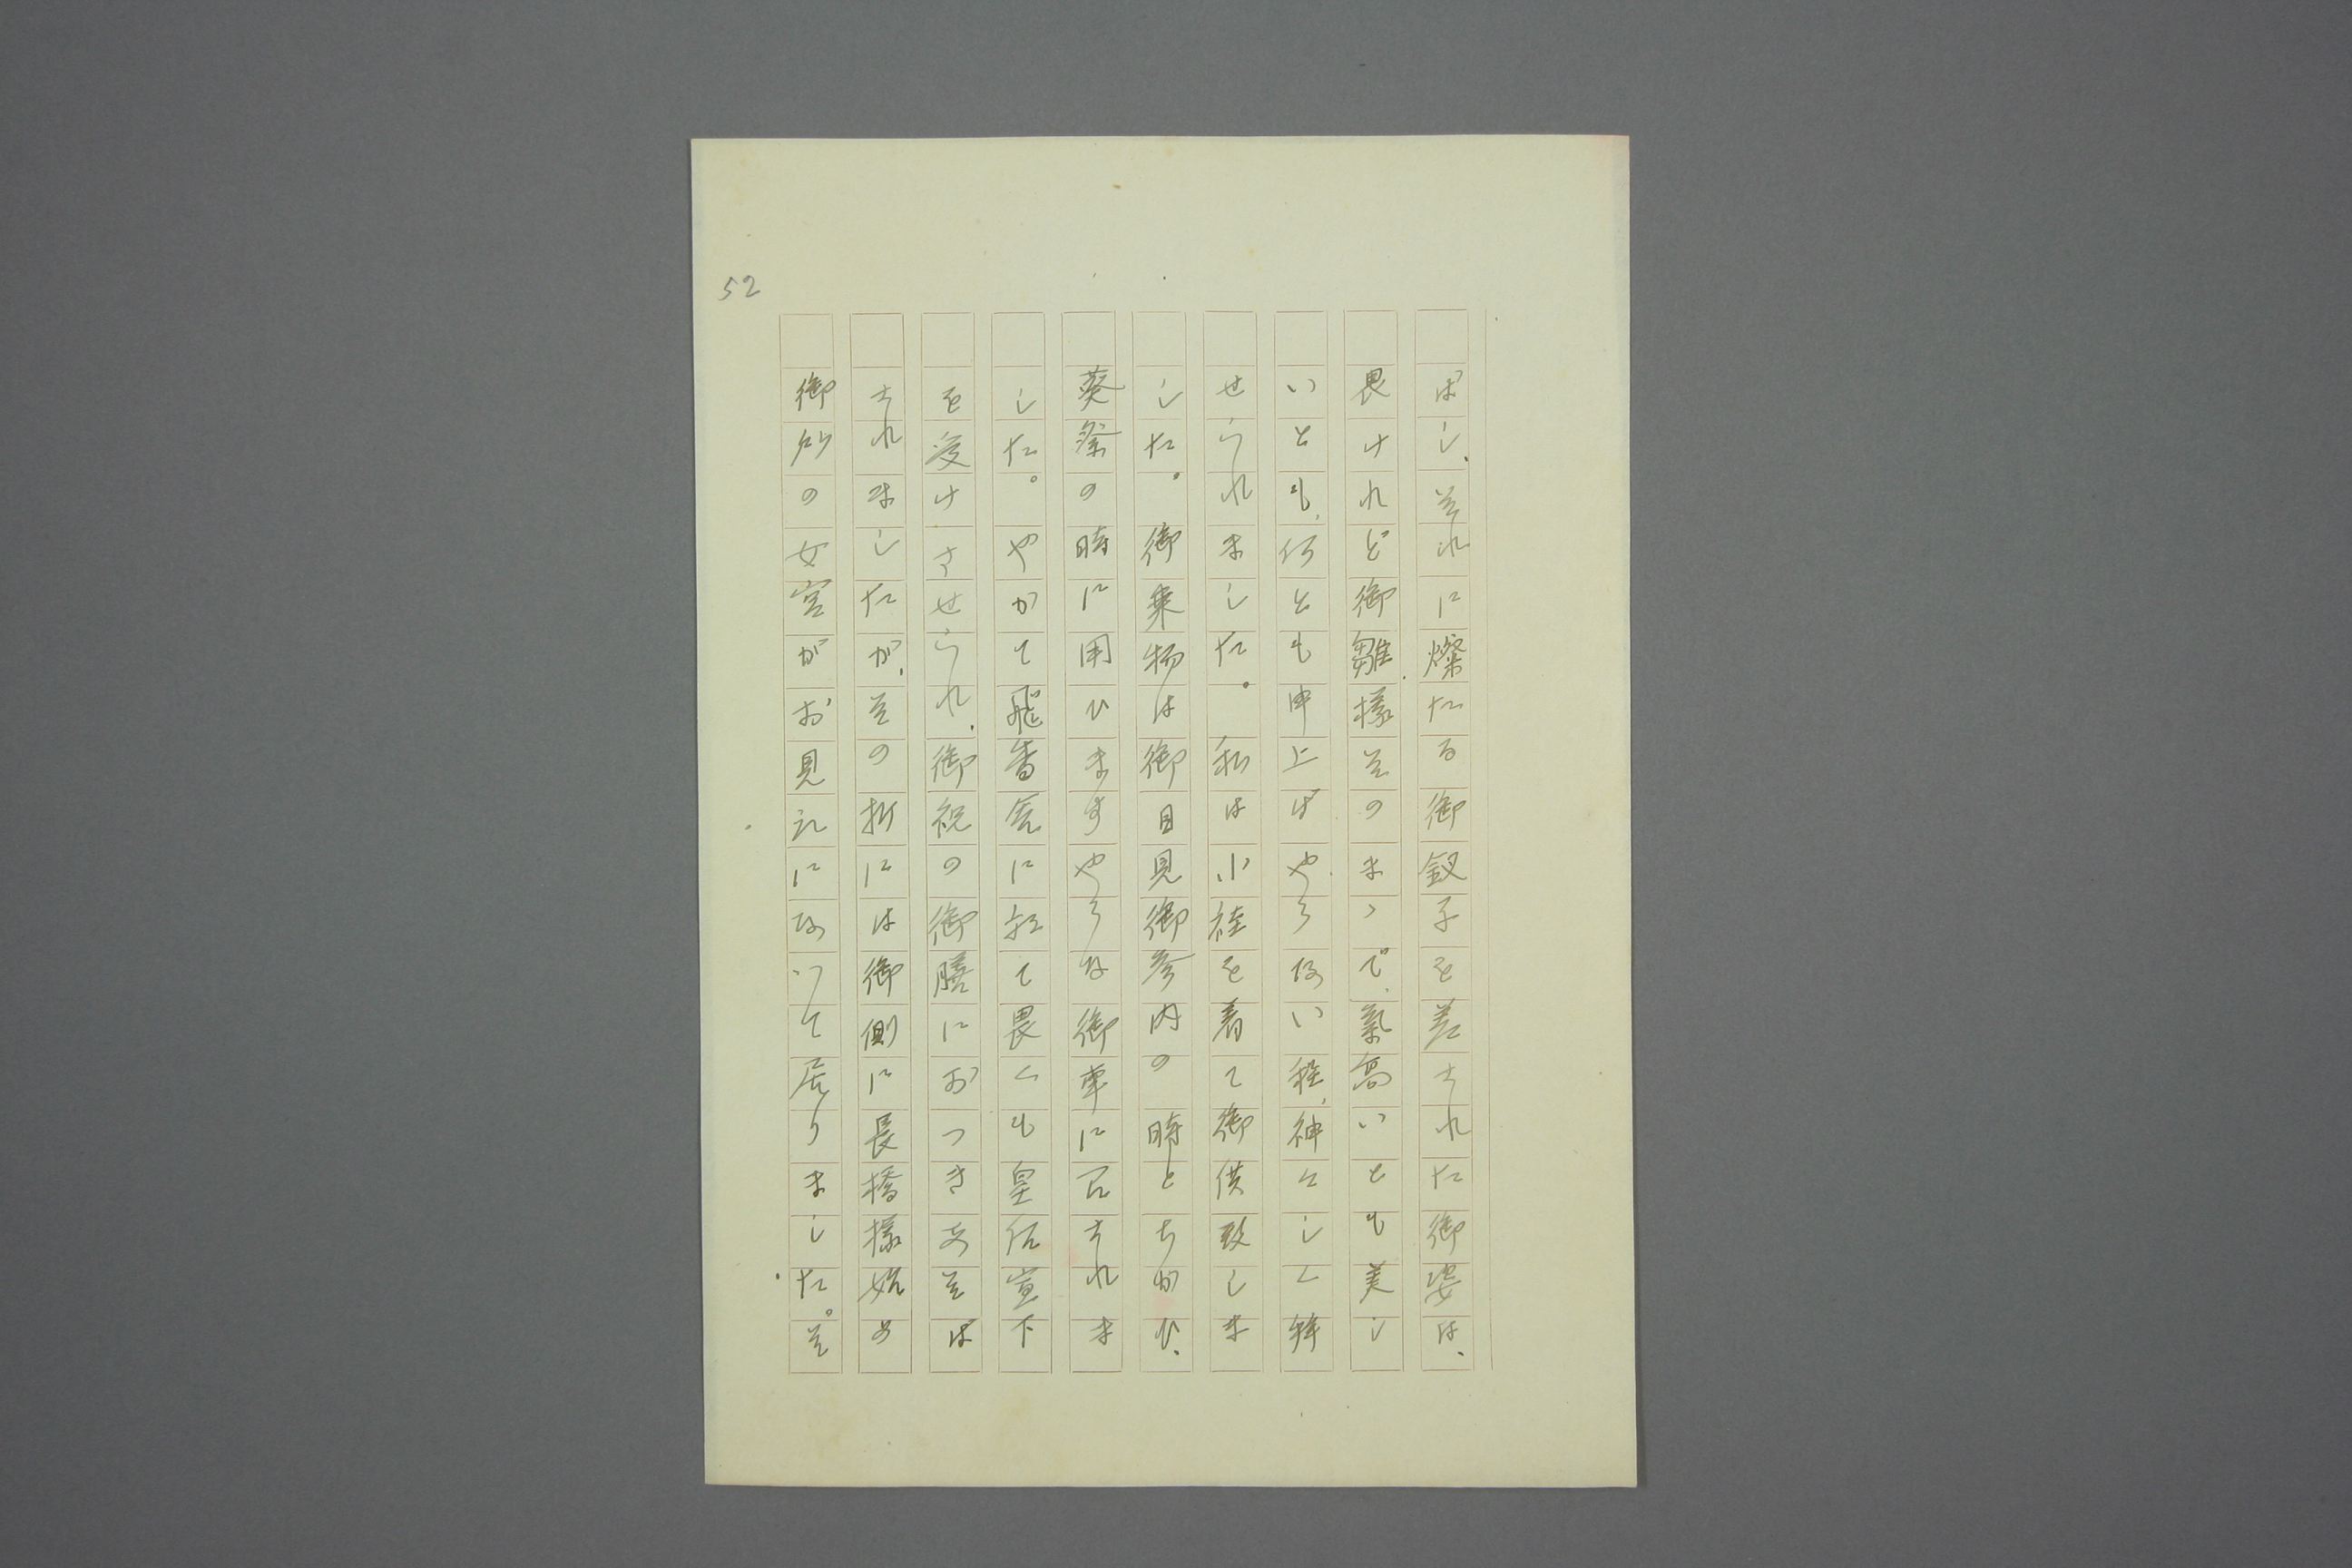 52
ばし、それに燦たる御釵子を差された御姿は、
畏けれど御雛様そのまゝで、氣高いとも美し
いとも、何とも申上ばやうない程、神々しく拝
せられました。私は小袿を着て御供致しま
した。御乗物は御目見御参内の時とちがひ、
葵祭の時に用ひますやうな御車に召されま
した。やがて飛香舎に於て畏くも皇后宣下
を受けさせられ、御祝の御膳におつきあそば
されましたが、その折には御側に長橋様始め
御附の女官がお見えになつて居りました。そ